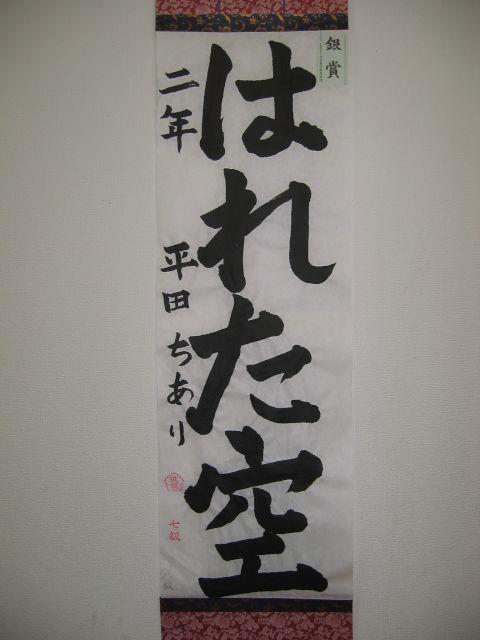 銀賞
はれた空
二年 平田 ちあり
七級